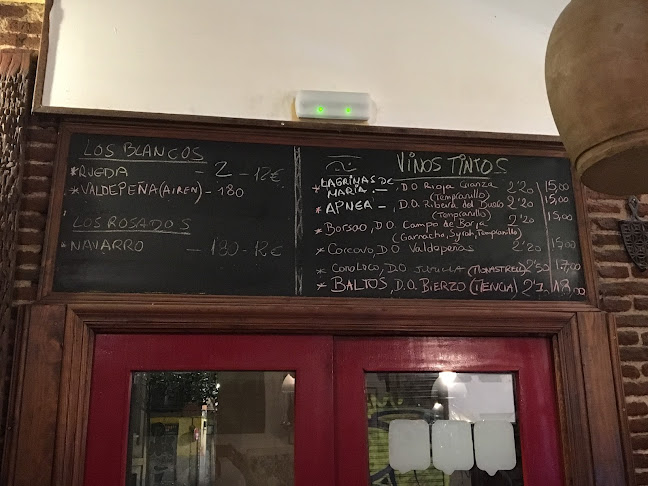 LOS BLANCOS
*RUEDA - 2 - 12€
*VALDEPEÑA (AIREN) - 1'80
LOS ROSADOS
*NAVARRO - 1'80 - 12€
VINOS TINTOS
*LAGRINAS DE MARIA.-, D.O Rioja Crianza 2'20 15,00
(Tempranillo)
*APNEA -, D.O. Ribera del Duero 2'20 15,00
(Tempranillo)
*Borsao, D.O Campo de Borja 2'20 15,00
(Garnacha, Syrah, Tempranillo)
*Corcovo, D.O Valdepeñas 2'20 15,00
*CoroLoco, D.O JUMILLA (MONASTRELL) 2'50 17,00
*BALTOS, D.O. BIERZO (MENCIA) 18,00